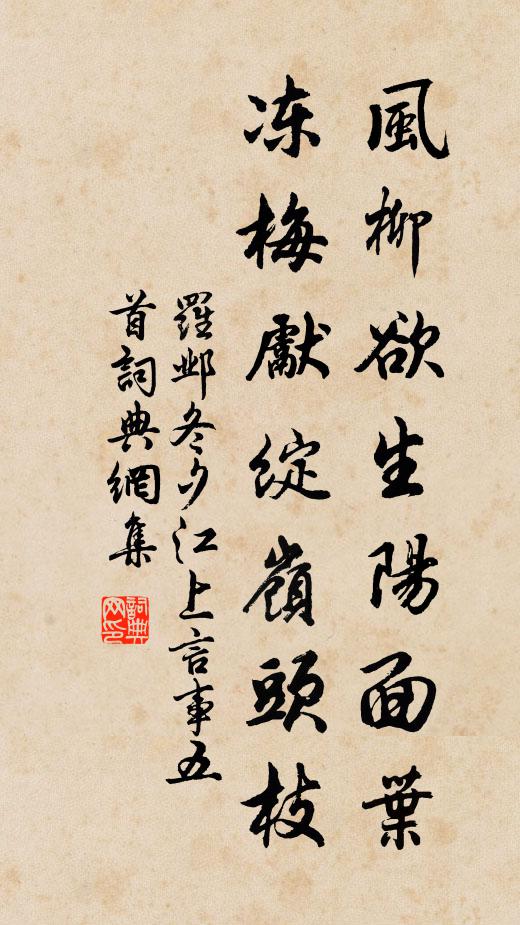 風柳欲生陽面葉
冻梅獻綻嶺頭枝
羅鄴冬夕江上言事五
首詞典網集
詞典
网印